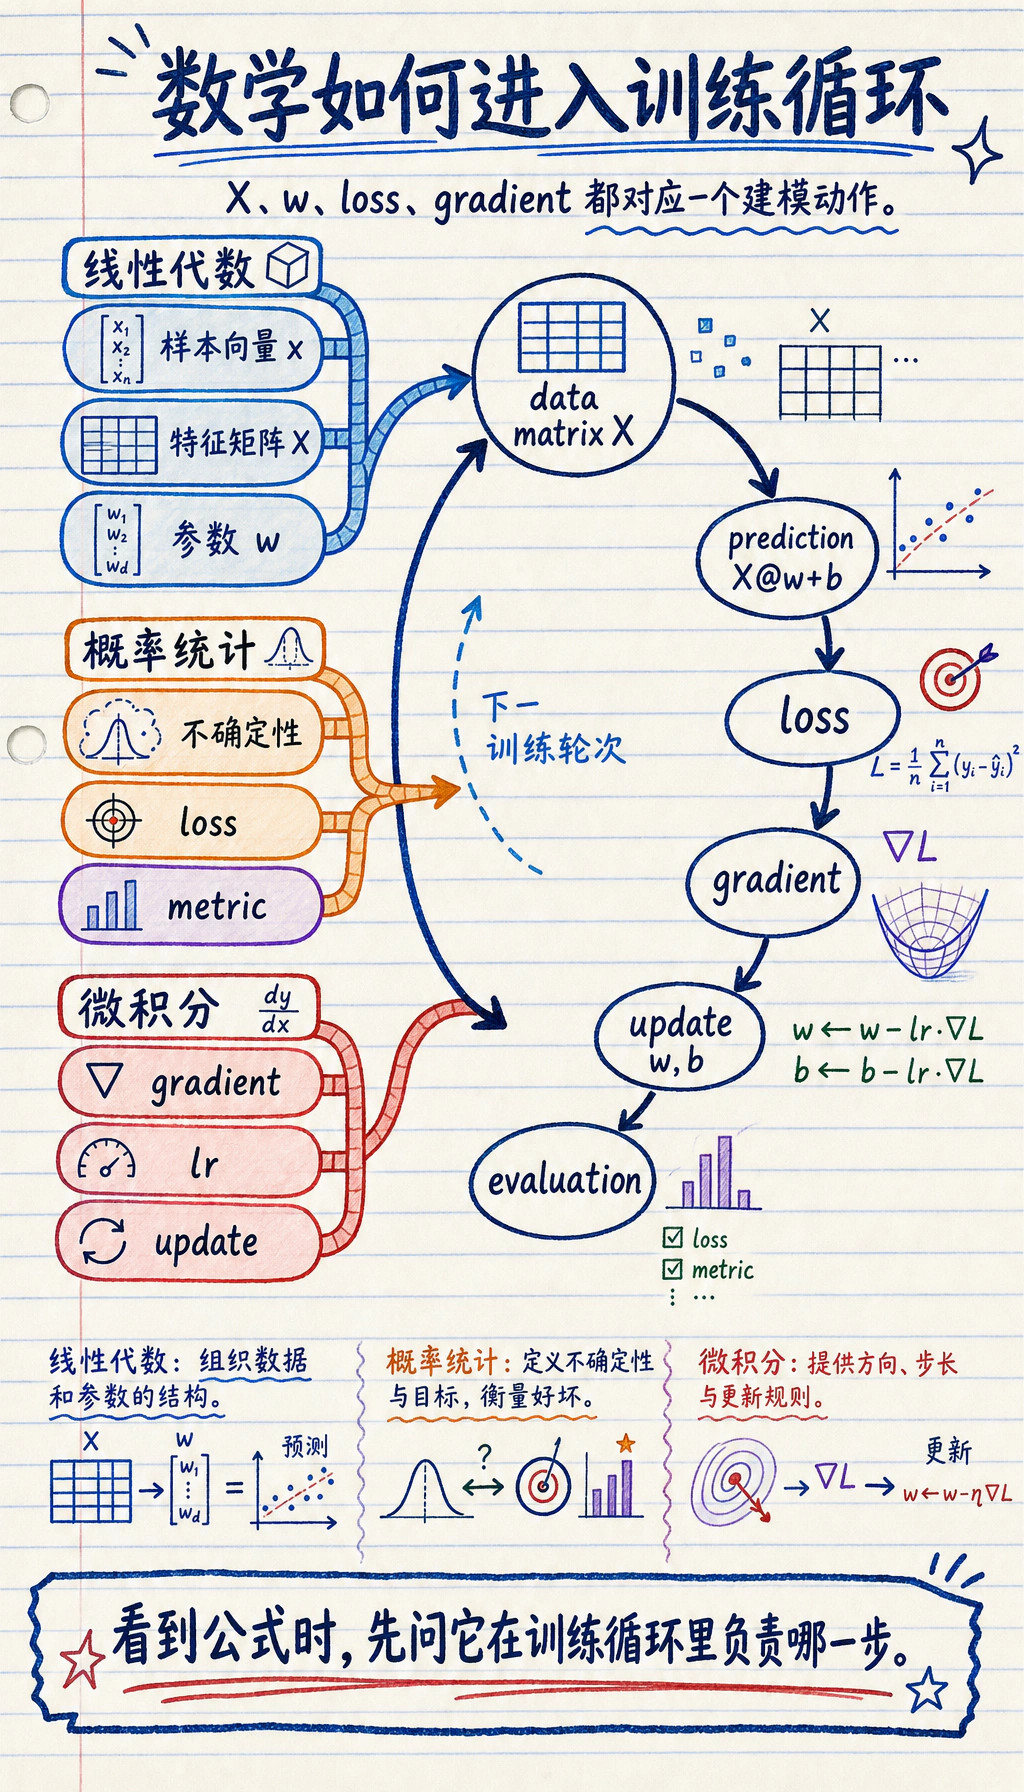 数学如何进入训练循环
X、w、loss、gradient 都对应一个建模动作。
线性代数
x₁
x₂
⋮
xₙ
样本向量 x
特征矩阵 X
w₁
w₂
⋮
w_d
参数 w
概率统计
不确定性
loss
metric
微积分
dy
dx
gradient
lr
update
data
matrix X
X
...
prediction
X@w+b
loss
L = 1/n ∑ᵢ₌₁ⁿ (yᵢ - ŷᵢ)²
gradient
∇L
update
w, b
w ← w - lr·∇L
b ← b - lr·∇L
evaluation
loss
metric
⋮ ...
下一
训练轮次
线性代数：组织数据
和参数的结构。
X
w
w₁
⋮
w_d
=
预测
概率统计：定义不确定性
与目标，衡量好坏。
?
微积分：提供方向、步长
与更新规则。
∇L
更新
w←w-η∇L
看到公式时，先问它在训练循环里负责哪一步。